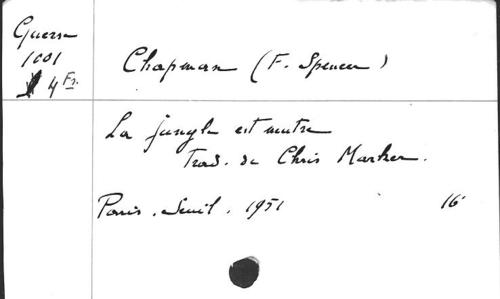 Guerre
1001
4 Fr.
Chapman (F. Spencer)
La jungle est neutre
Trad. de Chris Marker.
Paris. Seuil. 1951 16